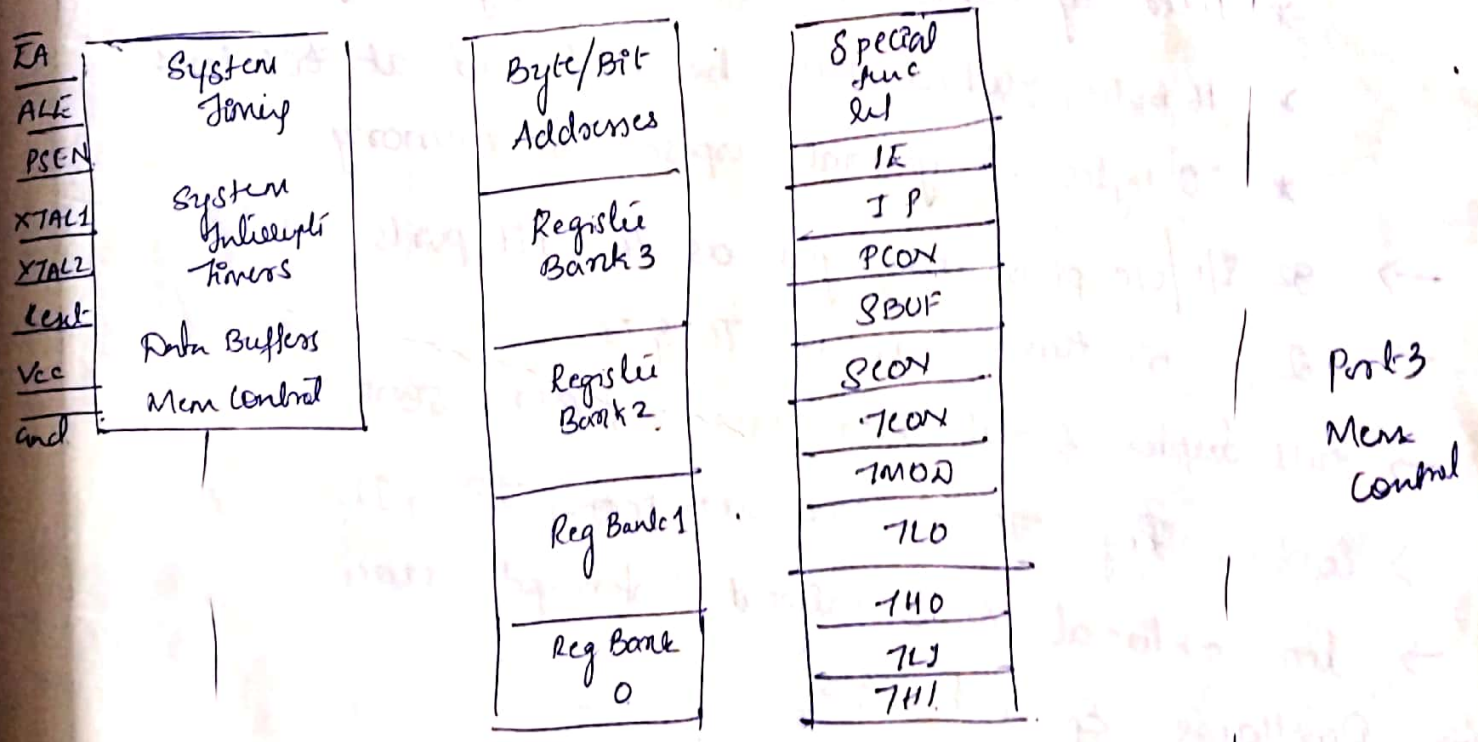 EA
ALE
PSEN
XTAL1
XTAL2
Reset
Vcc
Gnd
System
Timing
System
Interrupts
Timers
Data Buffers
Mem Control
Byte/Bit
Addresses
Register
Bank 3
Register
Bank 2
Reg Bank 1
Reg Bank
0
Special
func
IE
IP
PCON
SBUF
SCON
TCON
TMOD
TL0
TH0
TL1
TH1
Port-3
Mem
Control